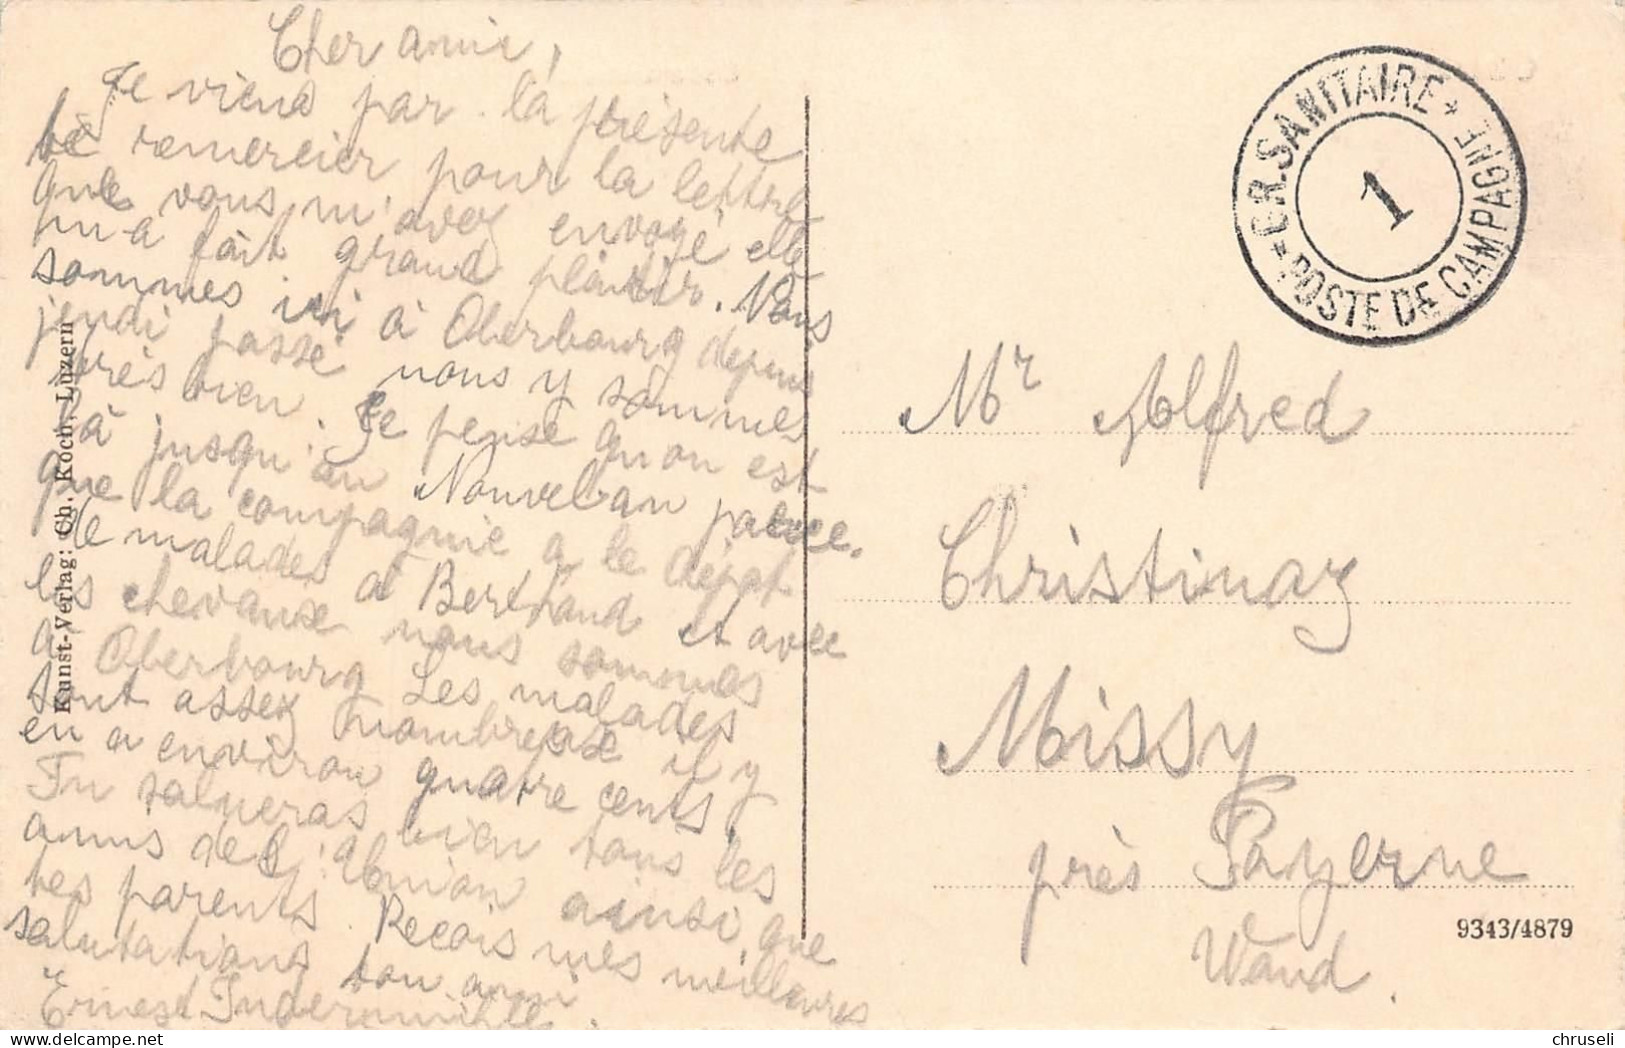 Cher ami,
Je viens par la présente
te remercier pour la lettre
que vous m'avez envoyé elle
m'a fait grand plaisir. Nous
sommes ici à Oberbourg depuis
jeudi passé nous y sommes
très bien. Je pense qu'on est
là jusqu'au Nouvel an parce.
que la compagnie a le dépot
de malades à Berthaud et avec
les chevause nous sommes
à Oberbourg Les malades
sont assez nombreuse il y
en a environ quatre cents.
Tu salueras bien tous les
amis de l'Abnion ainsi que
tes parents. Recois mes meilleures
salutations ton ami
Ernest
Kunst-Verlag: Ch. Koch, Luzern
* CR. SANITAIRE *
POSTE DE CAMPAGNE
1
Mr Alfred
Christinaz
Missy
près Payerne
Vaud.
9343/4879
chruseli